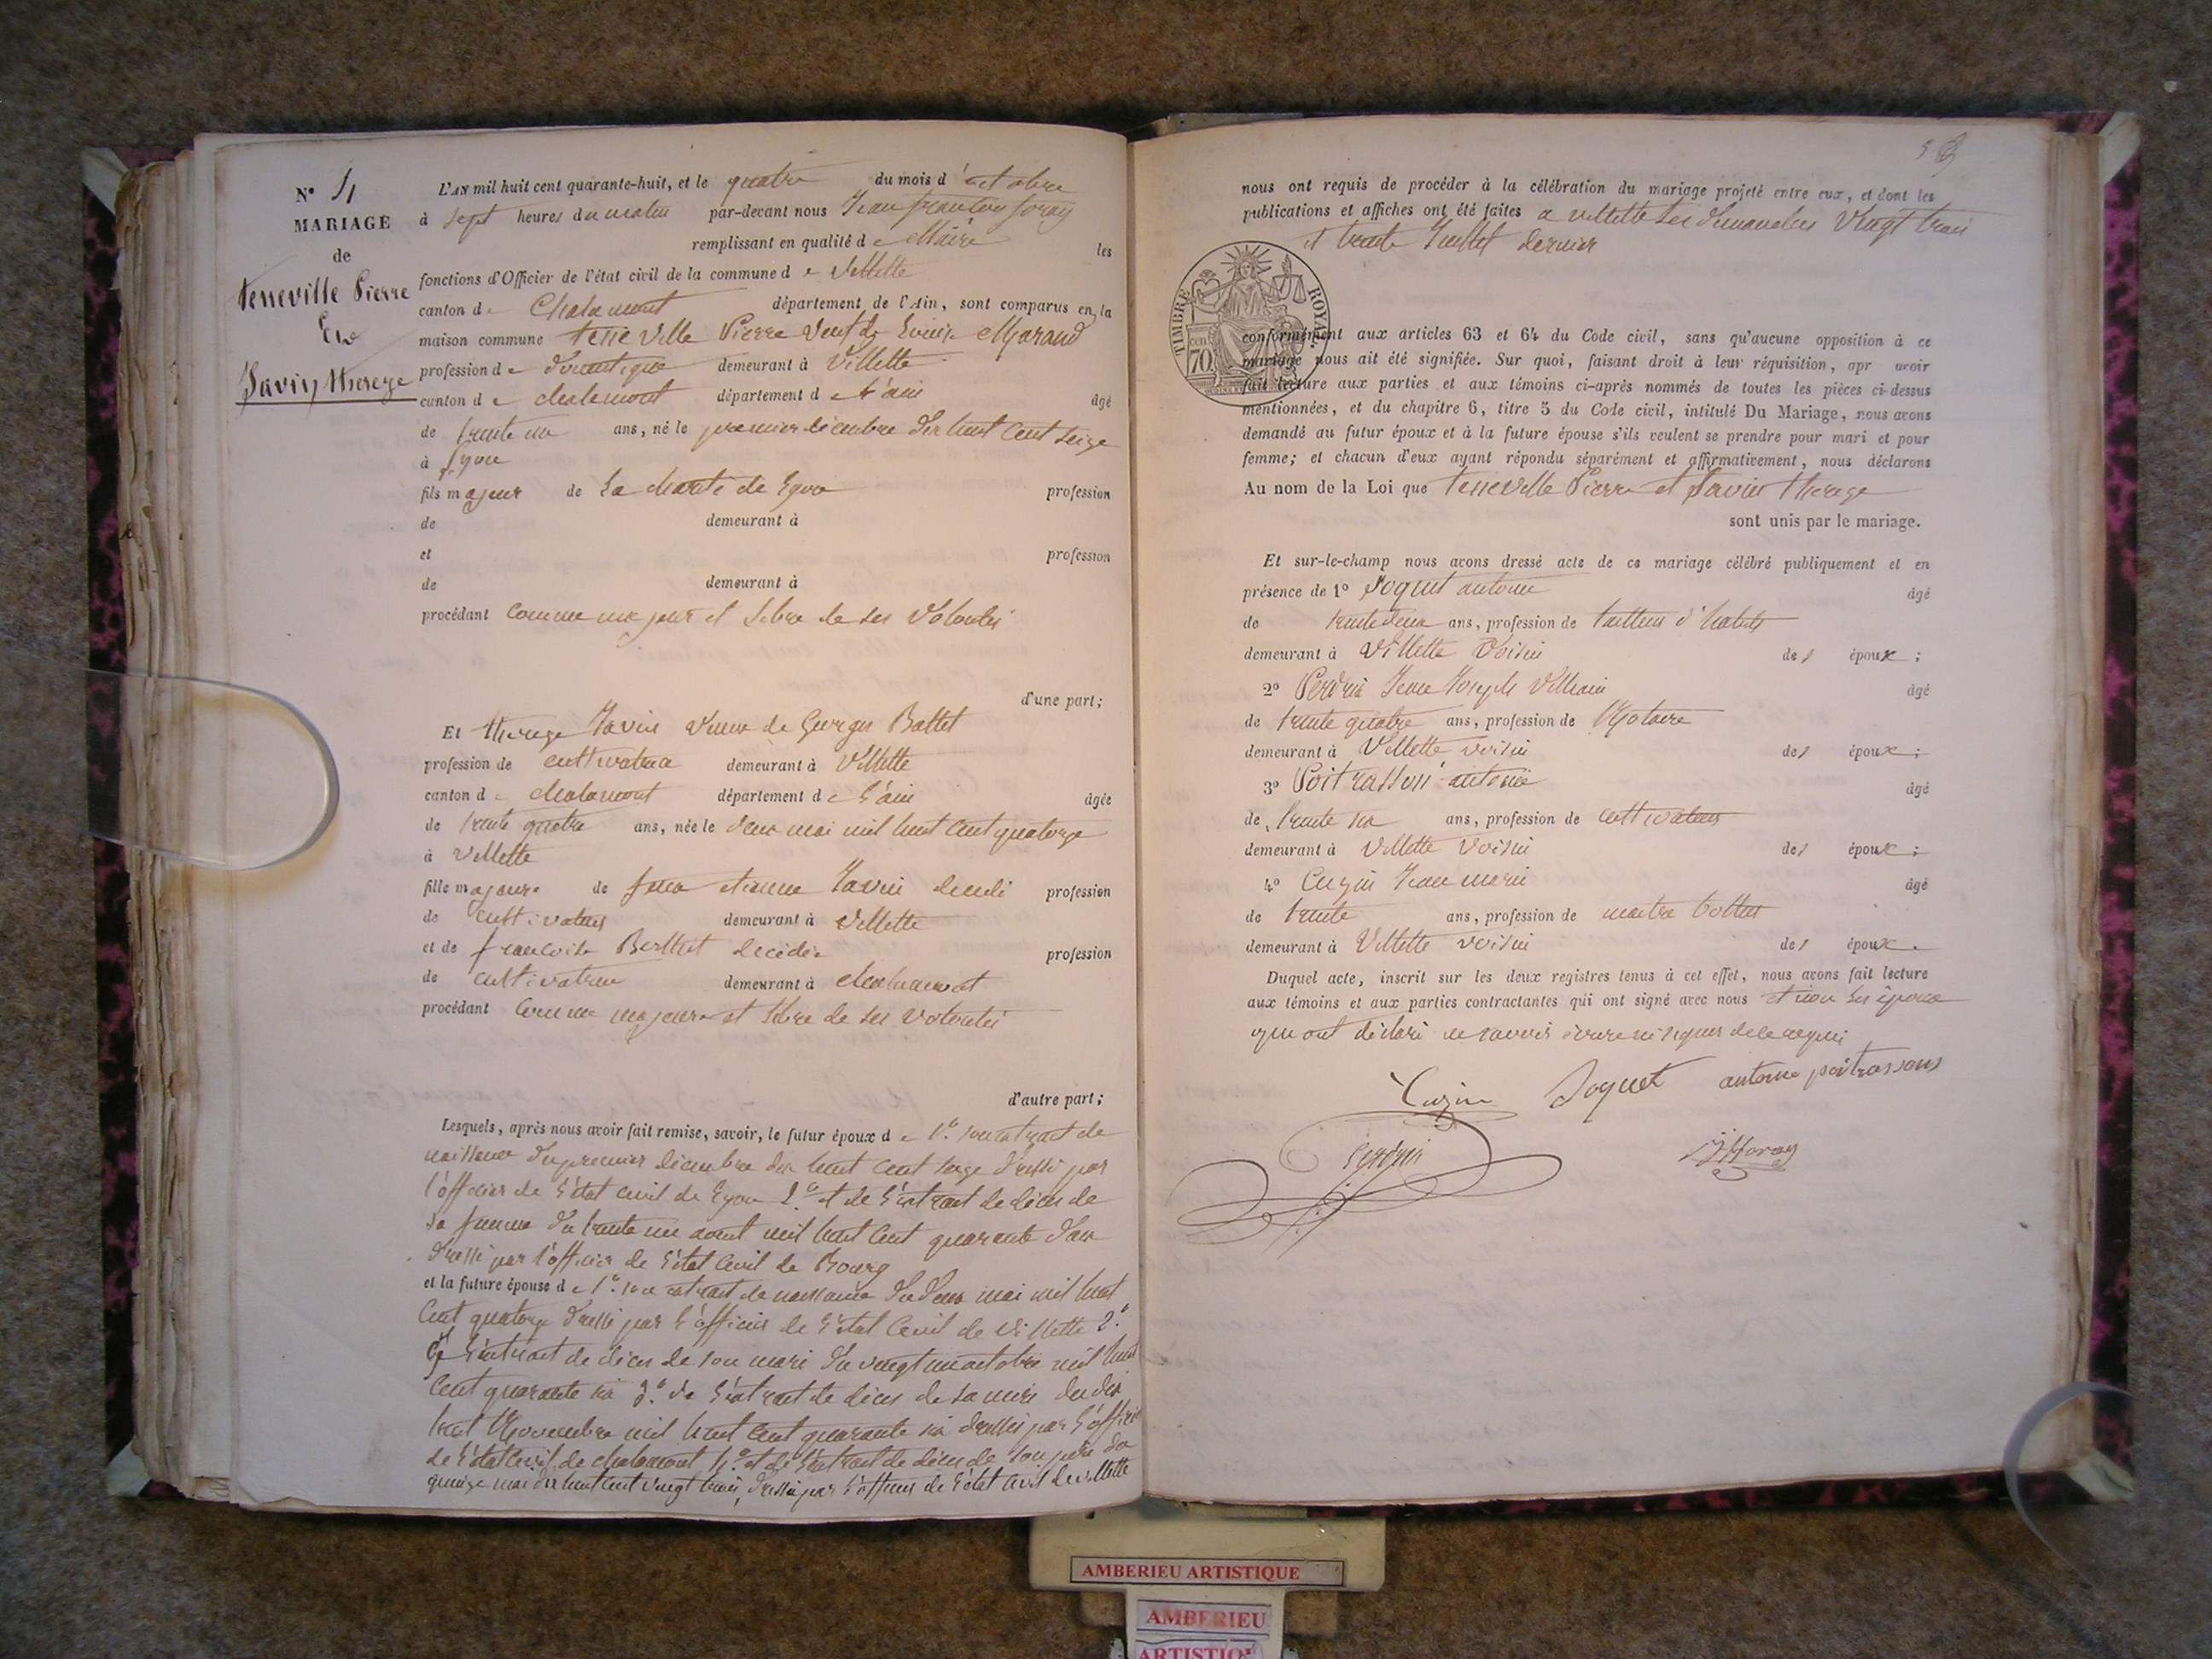 N° 4
MARIAGE
de
Tenneville Pierre
Et
Savin thereze
L'AN mil huit cent quarante-huit, et le quatre du mois d'octobre
à sept heures du matin par-devant nous Jean
remplissant en qualité de Maire les
fonctions d'Officier de l'état civil de la commune de Villette
canton de Chalamont département de l'Ain, sont comparus en la
maison commune Pierre veuf de Louise Morand
profession de domestique demeurant à Villette
canton de chalamont département de l'ain âgé
de trente un ans, né le premier décembre dix huit cent seize
à Lyon
fils majeur de La charité de Lyon profession
de demeurant à
et profession
de demeurant à
procédant comme majeur et libre de ses volontés
d'une part;
Et thereze Savin veuve de Georges Battet
profession de cultivatrice demeurant à Villette
canton de chalamont département de l'ain âgée
de trente quatre ans, née le deux mai mil huit cent quatorze
à Villette
fille majeure de etienne Savin profession
de cultivateur demeurant à Villette
et de francoise Berthet décédée profession
de cultivatrice demeurant à chalamont
procédant comme majeure et libre de ses volontés
d'autre part;
Lesquels, après nous avoir fait remise, savoir, le futur époux de 1° son extrait de
naissance du premier décembre dix huit cent seize dressé par
l'officier de l'état civil de Lyon 2° et de l'extrait de décès de
sa femme du trente un aout mil huit cent quarante deux
dressé par l'officier de l'état civil de Bourg
et la future épouse de 1° son extrait de naissance du deux mai mil huit
cent quatorze dressé par l'officier de l'état civil de Villette 2°
l'extrait de décès de son mari du vingt un octobre mil huit
cent quarante six 3° de l'extrait de décès de sa mère du dix
huit Novembre mil huit cent quarante six dressé par l'officier
de l'état civil de chalamont 4° et de l'extrait de décès de son père du
quinze mai dix huit cent vingt trois, dressé par l'officier de l'état civil de villette
nous ont requis de procéder à la célébration du mariage projeté entre eux, et dont les
publications et affiches ont été faites a villette les dimanches vingt trois
et trente Juillet dernier
TIMBRE ROYAL
70
conformément aux articles 63 et 64 du Code civil, sans qu'aucune opposition à ce
mariage nous ait été signifiée. Sur quoi, faisant droit à leur réquisition, apr avoir
fait lecture aux parties et aux témoins ci-après nommés de toutes les pièces ci-dessus
mentionnées, et du chapitre 6, titre 5 du Code civil, intitulé Du Mariage, nous avons
demandé au futur époux et à la future épouse s'ils veulent se prendre pour mari et pour
femme; et chacun d'eux ayant répondu séparément et affirmativement, nous déclarons
Au nom de la Loi que Tenneville Pierre et Savin thereze
sont unis par le mariage.
Et sur-le-champ nous avons dressé acte de ce mariage célébré publiquement et en
présence de 1° Joguet antoine âgé
de trente deux ans, profession de tailleur d'habits
demeurant à Villette voisin des époux;
2° Perdrix Jean Joseph âgé
de trente quatre ans, profession de Notaire
demeurant à Villette voisin des époux;
3° Poitrasson antoine âgé
de trente six ans, profession de cultivateur
demeurant à Villette voisin des époux;
4° Cuzin Jean marie âgé
de trente ans, profession de
demeurant à Villette voisin des époux.
Duquel acte, inscrit sur les deux registres tenus à cet effet, nous avons fait lecture
aux témoins et aux parties contractantes qui ont signé avec nous et non les époux
qui ont déclaré ne savoir écrire ni signer de ce requis
Cuzin Joguet antoine poitrassons
AMBERIEU ARTISTIQUE
AMBERIEU
ARTISTIQ